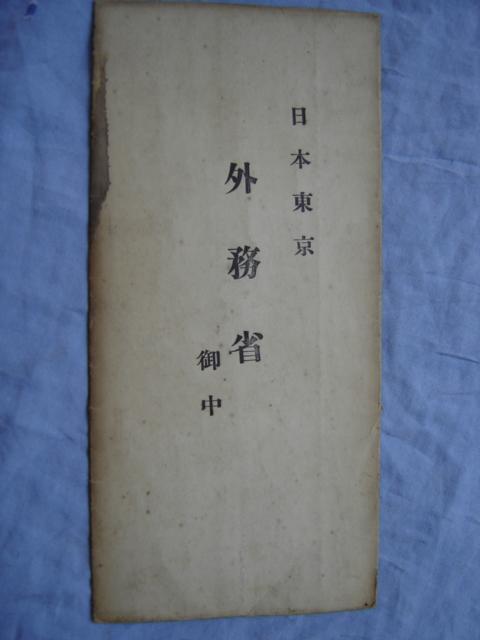 日本東京
外務省
御中